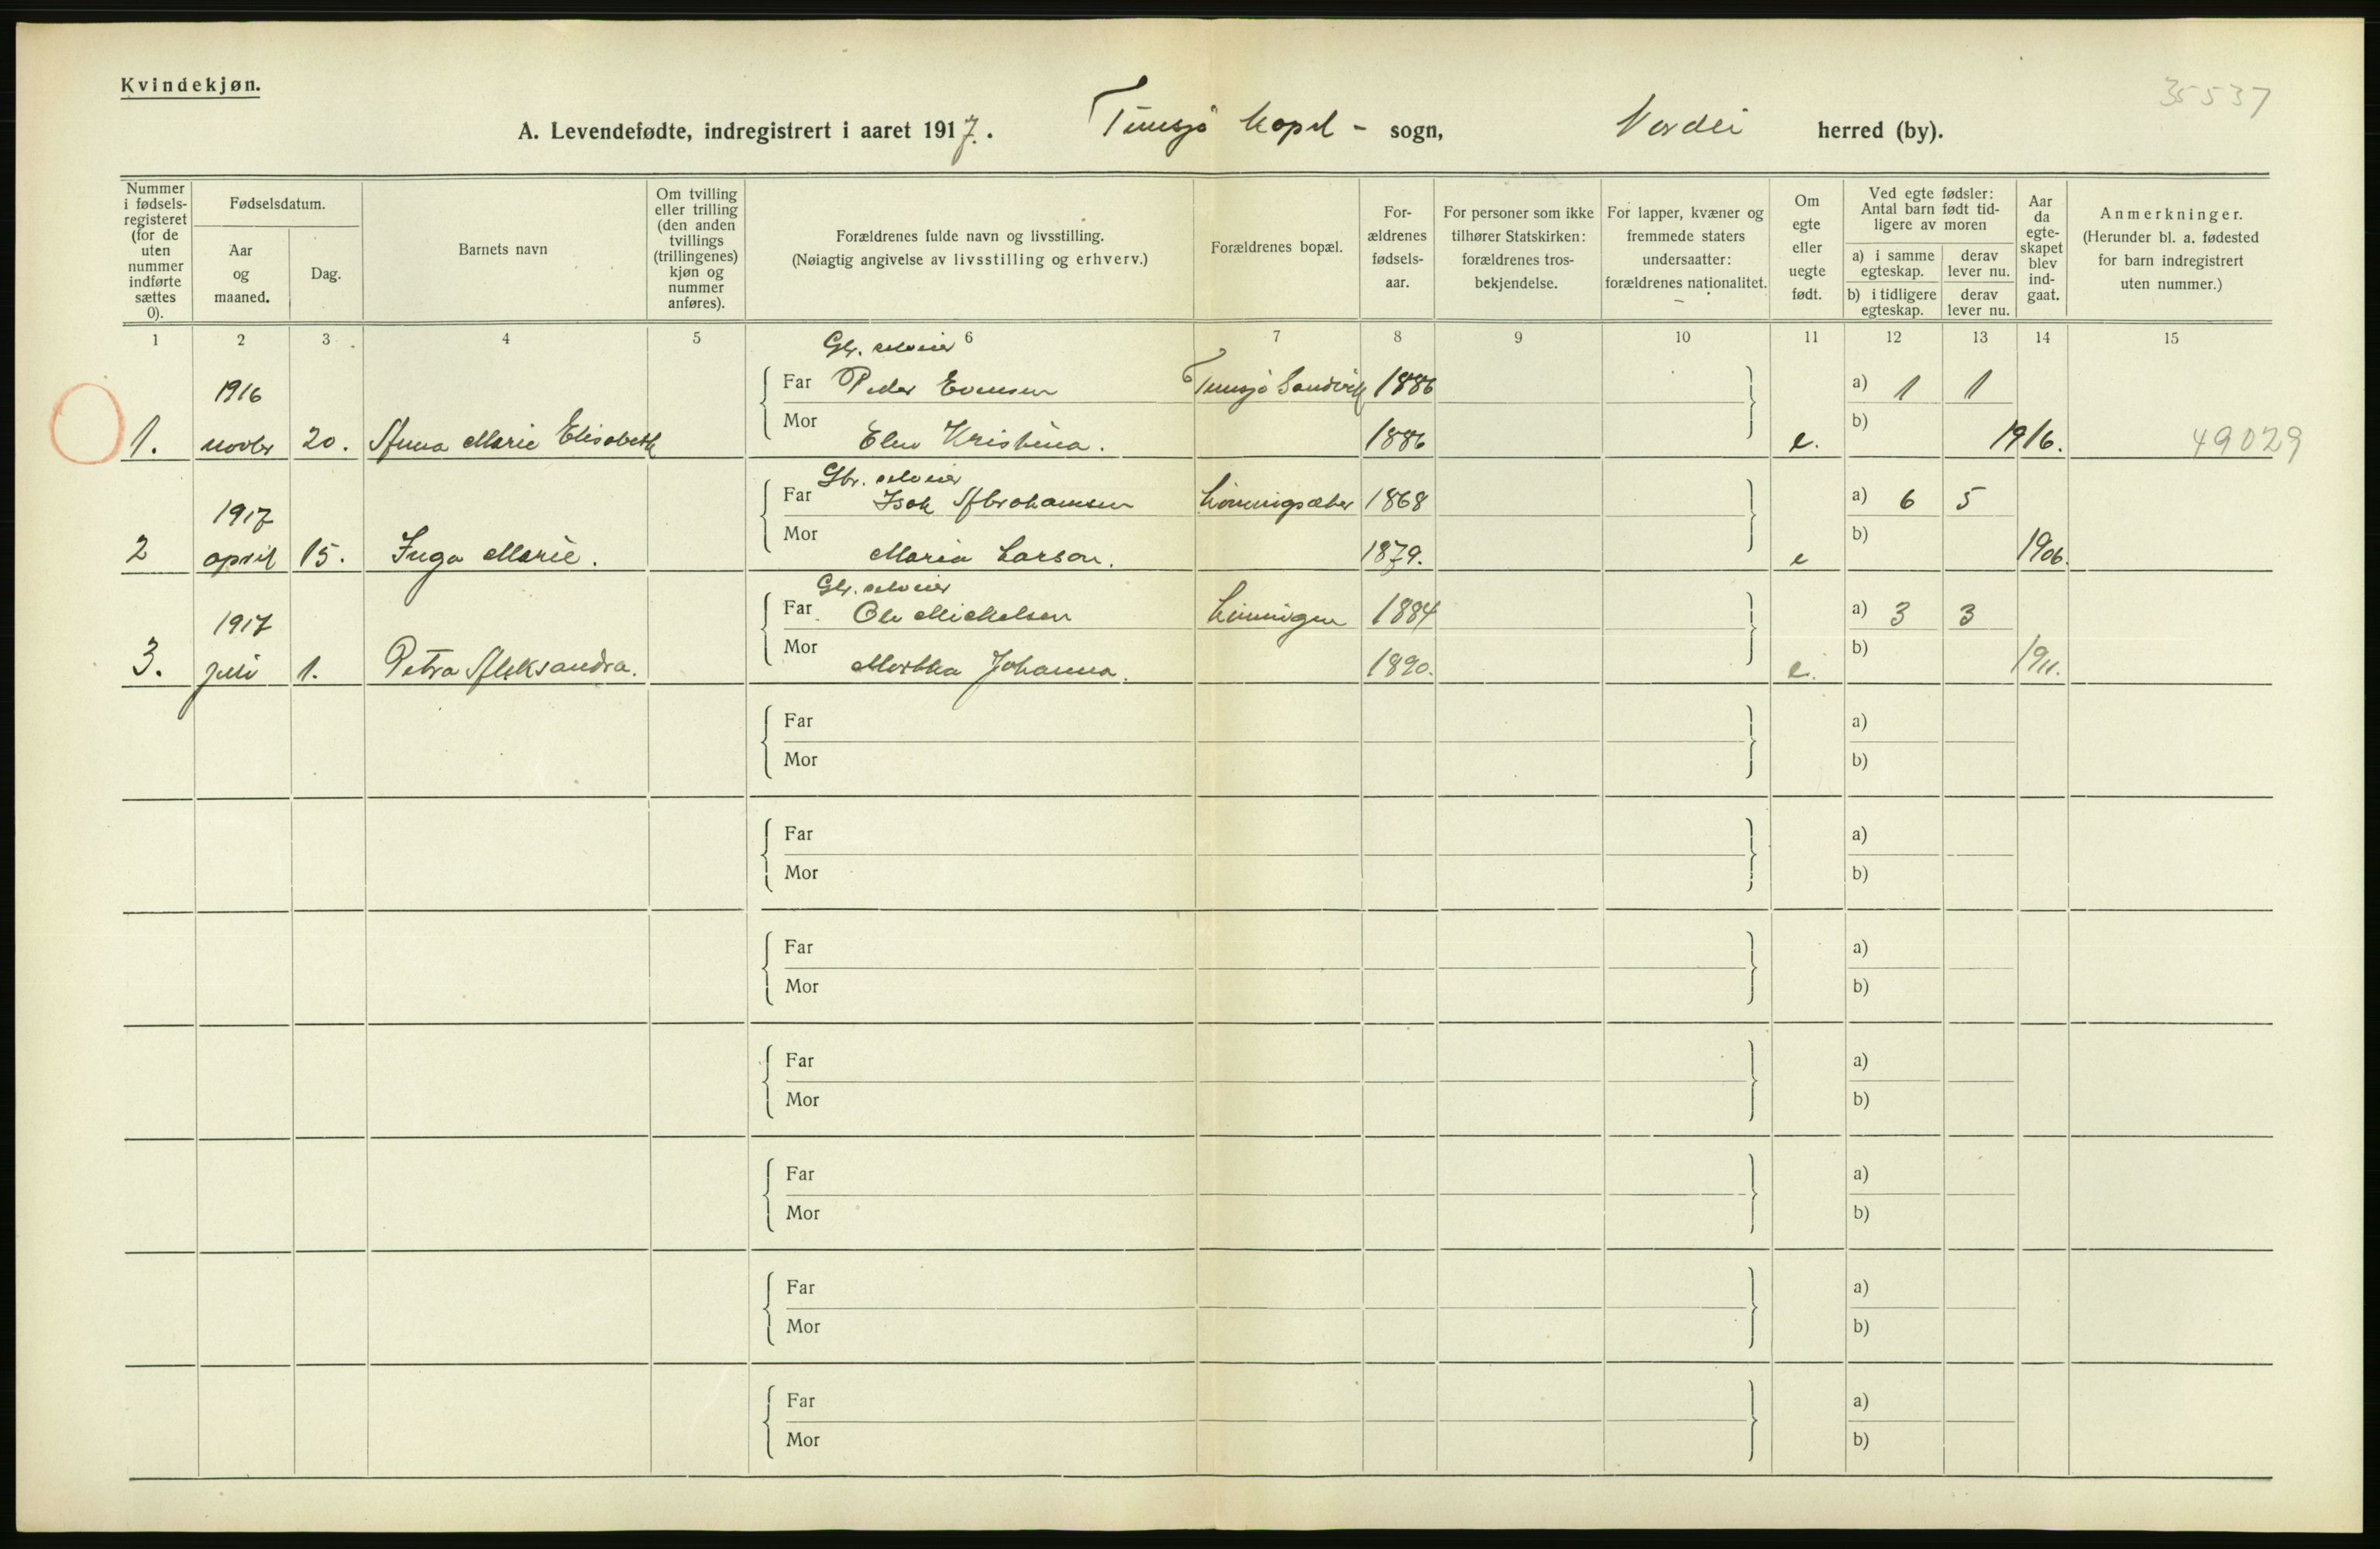 Kvindekjøn.
35537
A. Levendefødte, indregistrert i aaret 1917. Tunsjø kapel - sogn, Nordli herred (by).
Nummer i fødsels-registeret (for de uten nummer indførte sættes 0).
Fødselsdatum.
Aar og maaned.
Dag.
Barnets navn
Om tvilling eller trilling (den anden tvillings (trillingenes) kjøn og nummer anføres).
Forældrenes fulde navn og livsstilling.
(Nøiagtig angivelse av livsstilling og erhverv.)
Forældrenes bopæl.
For-ældrenes fødsels-aar.
For personer som ikke tilhører Statskirken: forældrenes tros-bekjendelse.
For lapper, kvæner og fremmede staters undersaatter: forældrenes nationalitet.
Om egte eller uegte født.
Ved egte fødsler: Antal barn født tid-ligere av moren
a) i samme egteskap.
derav lever nu.
b) i tidligere egteskap.
derav lever nu.
Aar da egte-skapet blev ind-gaat.
Anmerkninger.
(Herunder bl. a. fødested for barn indregistrert uten nummer.)
1 2 3 4 5 6 7 8 9 10 11 12 13 14 15
Gbr. selveier
1916 Far Peder Evensen Tunsjø Sandvik 1886 a) 1 1
1. novbr 20. Anna Marie Elisabeth Mor Elen Kristina. 1886 e. b) 1916. 49029
Gbr. selveier
1917 Far Isak Abrahamsen 1868 a) 6 5
2 april 15. Inga Marie. Mor Maria Larson. 1879. e b) 1906.
Gbr. selveier
1917 Far Ole Mickelsen 1884 a) 3 3
3. juli 1. Petra Aleksandra. Mor Martha Johanna. 1890. e. b) 1911.
Far a)
Mor b)
Far a)
Mor b)
Far a)
Mor b)
Far a)
Mor b)
Far a)
Mor b)
Far a)
Mor b)
Far a)
Mor b)